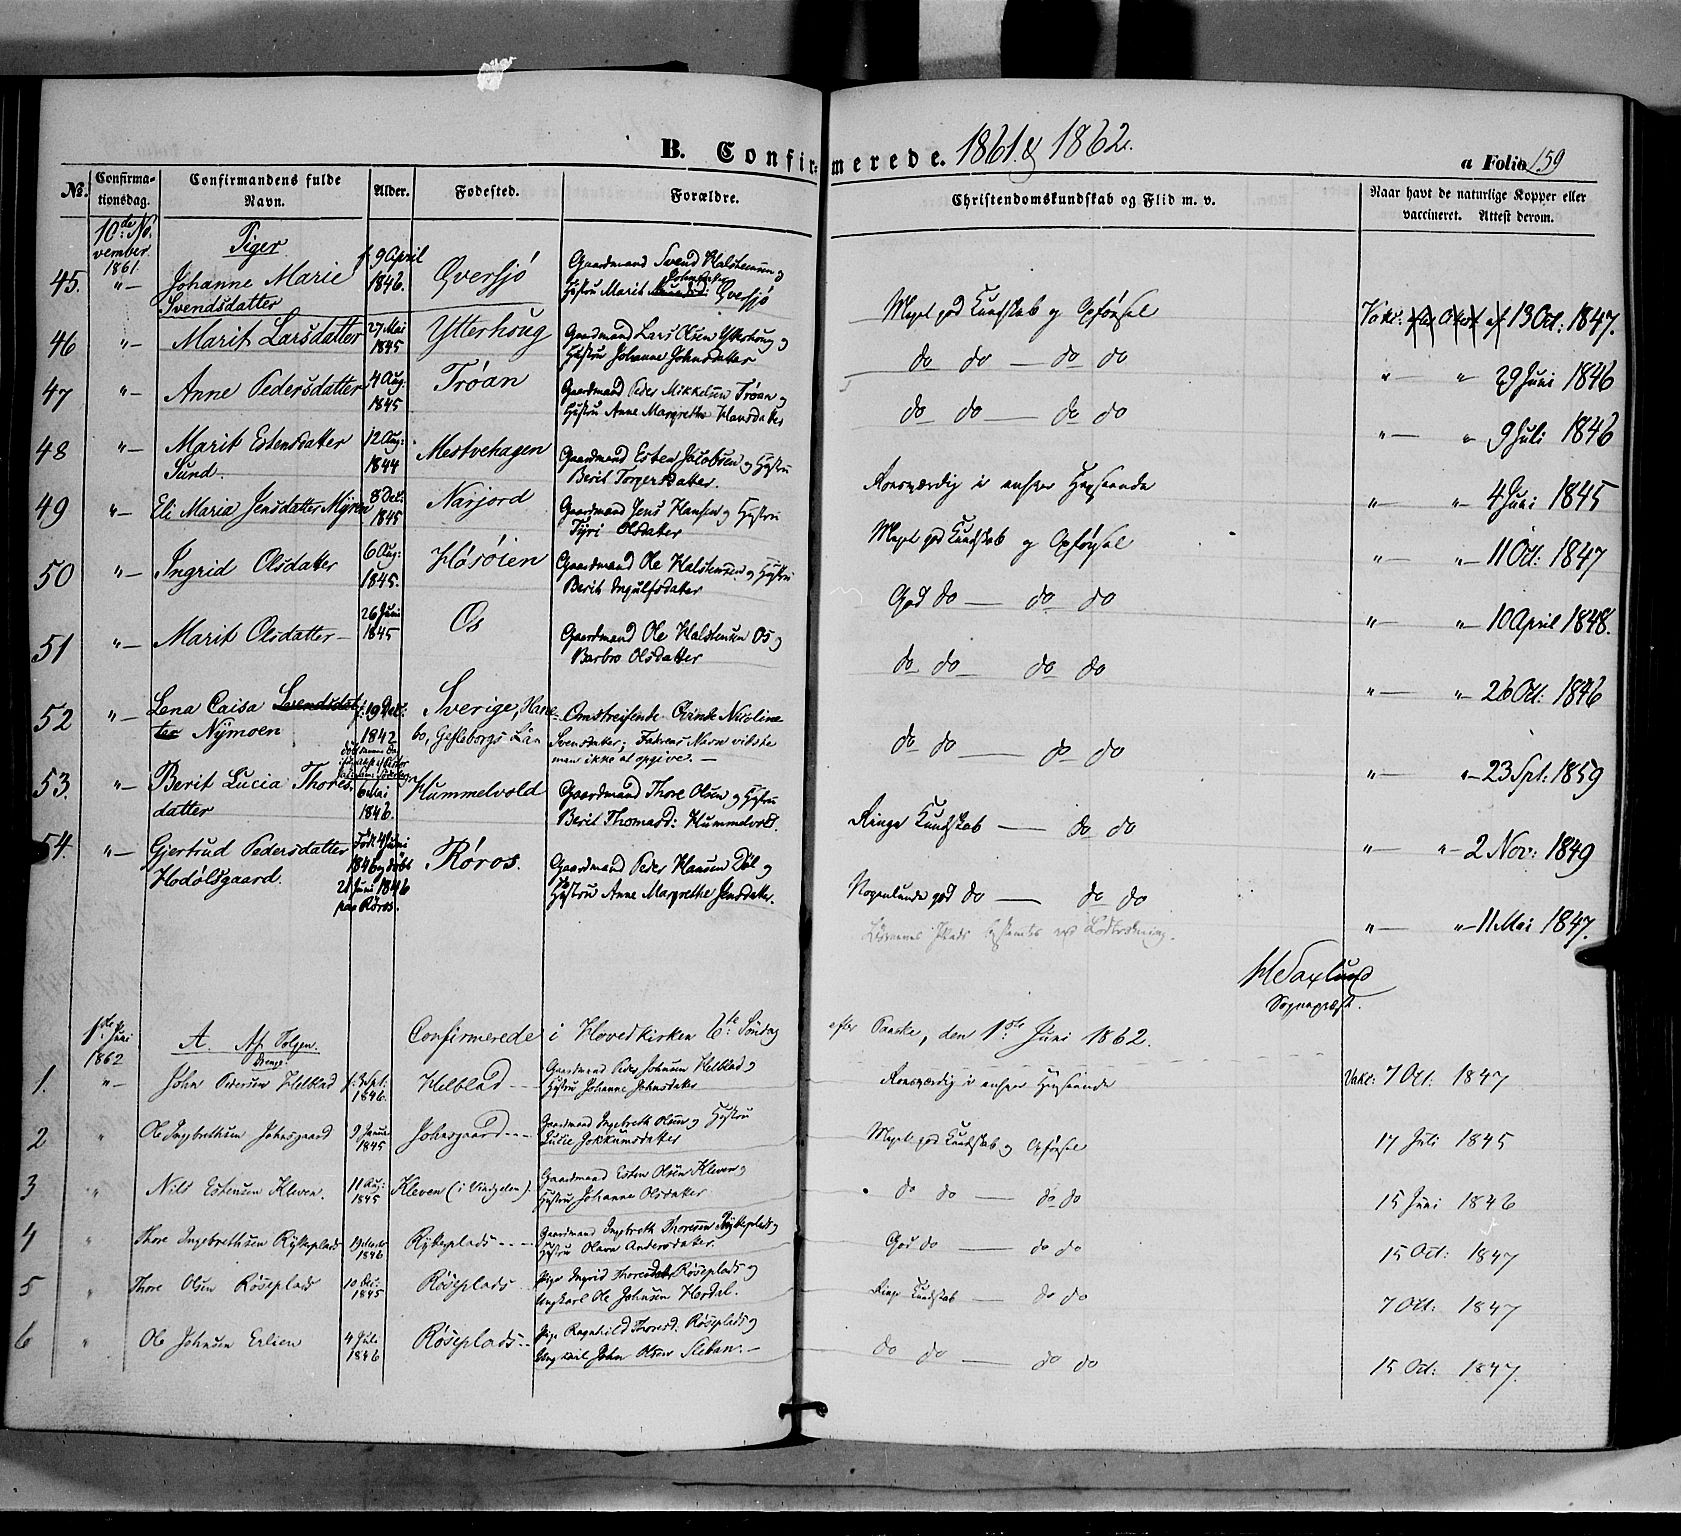 B. Confirmerede. 1861 & 1862. a Folio 159
No. Confirmationsdag. Confirmandens fulde Navn. Alder. Fødested. Forældre. Christendomskundskab og Flid m. v. Naar havt de naturlige Kopper eller vaccineret. Attest derom.
10de No-
vember
1861.
Piger
45. "— Johanne Marie Svendsdatter f. 9 April 1846. Qversjø Gaardmand Svend Halstensen og Hustru Marit Qversjø Meget god Kundskab og Opførsel Vakc: 13 Oct: 1847.
46 "— Marit Larsdatter 27 Mai 1845 Ytterhoug Gaardmand Lars Olsen Ytterhoug og Hustru Johanne Johnsdatter do do — do do "— " 29 Juni 1846
47 "— Anne Pedersdatter 4 Aug: 1845 Trøan Gaardmand Peder Mikkelsen Trøan og Hustru Anne Margrethe Hansdatter do do — do do "— " 9 Juli 1846
48 "— Marit Estensdatter Sund. 12 Aug: 1844 Mestvehagen Gaardmand Esten Jacobsen og Hustru Berit Torgersdatter. Roesværdig i enhver Henseende "— "— 4 Juni 1845
49 "— Eli Maria Jensdatter Myren 8 Dec: 1845 Narjord Gaardmand Jens Hansen og Hustru Tyri Olsdatter Meget god Kundskab og Opførsel "— "— 11 Oct: 1847
50 "— Ingrid Olsdatter 6 Aug: 1845. Høsøien Gaardmand Ole Halstensen og Hustru Berit Ingulfsdatter God do — do do "— "— 10 April 1848.
51 "— Marit Olsdatter— 26 Juni 1845 Os Gaardmand Ole Halstensen Os og Barbro Olsdatter do do do do "— "— 26 Oct. 1846
52 "— Lena Caisa Svendsdatter Nymoen f. 19 Dec. 1842 Sverige, Hanebo, Gefleborgs Län Omstreifende Qvinde Nicoline Svensdatter; Faderens Navn vilste man ikke at opgive. — do do — do do "— "— 23 Spt. 1859
53. "— Berit Lucia Thoresdatter 6 Mai 1846. Hummelvold Gaardmand Thore Olsen og Hustru Berit Thomasd: Hummelvold. Ringe Kundskab — do do "— "— 2 Nov: 1849
54. "— Gjertrud Pedersdatter Hodølsgaard. Født 4 Juni 1846 og døbt 21 Juni 1846 paa Røros. Røros. Gaardmand Peder Hansen og Hustru Anne Margrethe Jensdatter. Nogenlunde god do — do do "— "— 11 Mai 1847.
Børnenes Plads bestemtes ved Lodtrækning.
H Saxlund
Sognepræst.
1ste Juni
1862
A. Af Tolgen.
Drenge
Confirmerede i Hovedkirken 6te Søndag efter Paaske, den 1ste Juni 1862.
1. "— John Pedersen Helblad f: Sept: 1846. Helblad— Gaardmand Peder Johnsen Helblad og Hustru Johanne Johnsdatter Roesværdig i enhver Henseende Vakc: 7 Oct: 1847
2 " Ole Ingebrethsen Johnsgaard 9 Janua 1845 Johnsgaard--- Gaardmand Ingebreth Olsen og Hustru Lucie Jokkumsdatter Meget god Kundskab og Opførsel 17 Juli 1845
3 " Nils Estensen Kleven. 11 Aug: 1845 Kleven (i Vingelen). Gaardmand Esten Olsen Kleven og Hustru Johanne Olsdatter do do — do do 15 Juni 1846
4 " Thore Ingebrethsen Rykeplads 1846 Rykeplads---- Gaardmand Ingebreth Thoresen Rykeplads og Hustru Olava Andersdatter. God do — do do 15 Oct: 1847
5 " Thore Olsen Røseplads 10 Dec: 1845 Røseplads--- Pige Ingrid Thoresdatter Røseplads og Ungkarl Ole Johnsen Hordal. Ringe Kundskab — do do 7 Oct: 1847
6 " Ole Johnsen Erlien 4 Juli 1846 Røseplads--- Pige Ragnhild Thoresd. Røseplads og Ungkarl John Olsen — do do — do do 15 Oct: 1847.